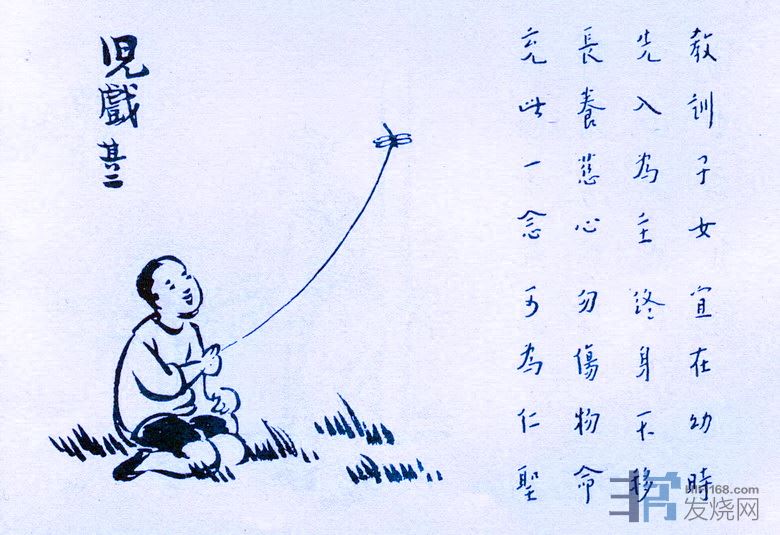 教訓子女宜在幼時
先入為主終身不移
長養慈心勿傷物命
充此一念可為仁聖
兒戲
其二
hifi168.com
发烧网